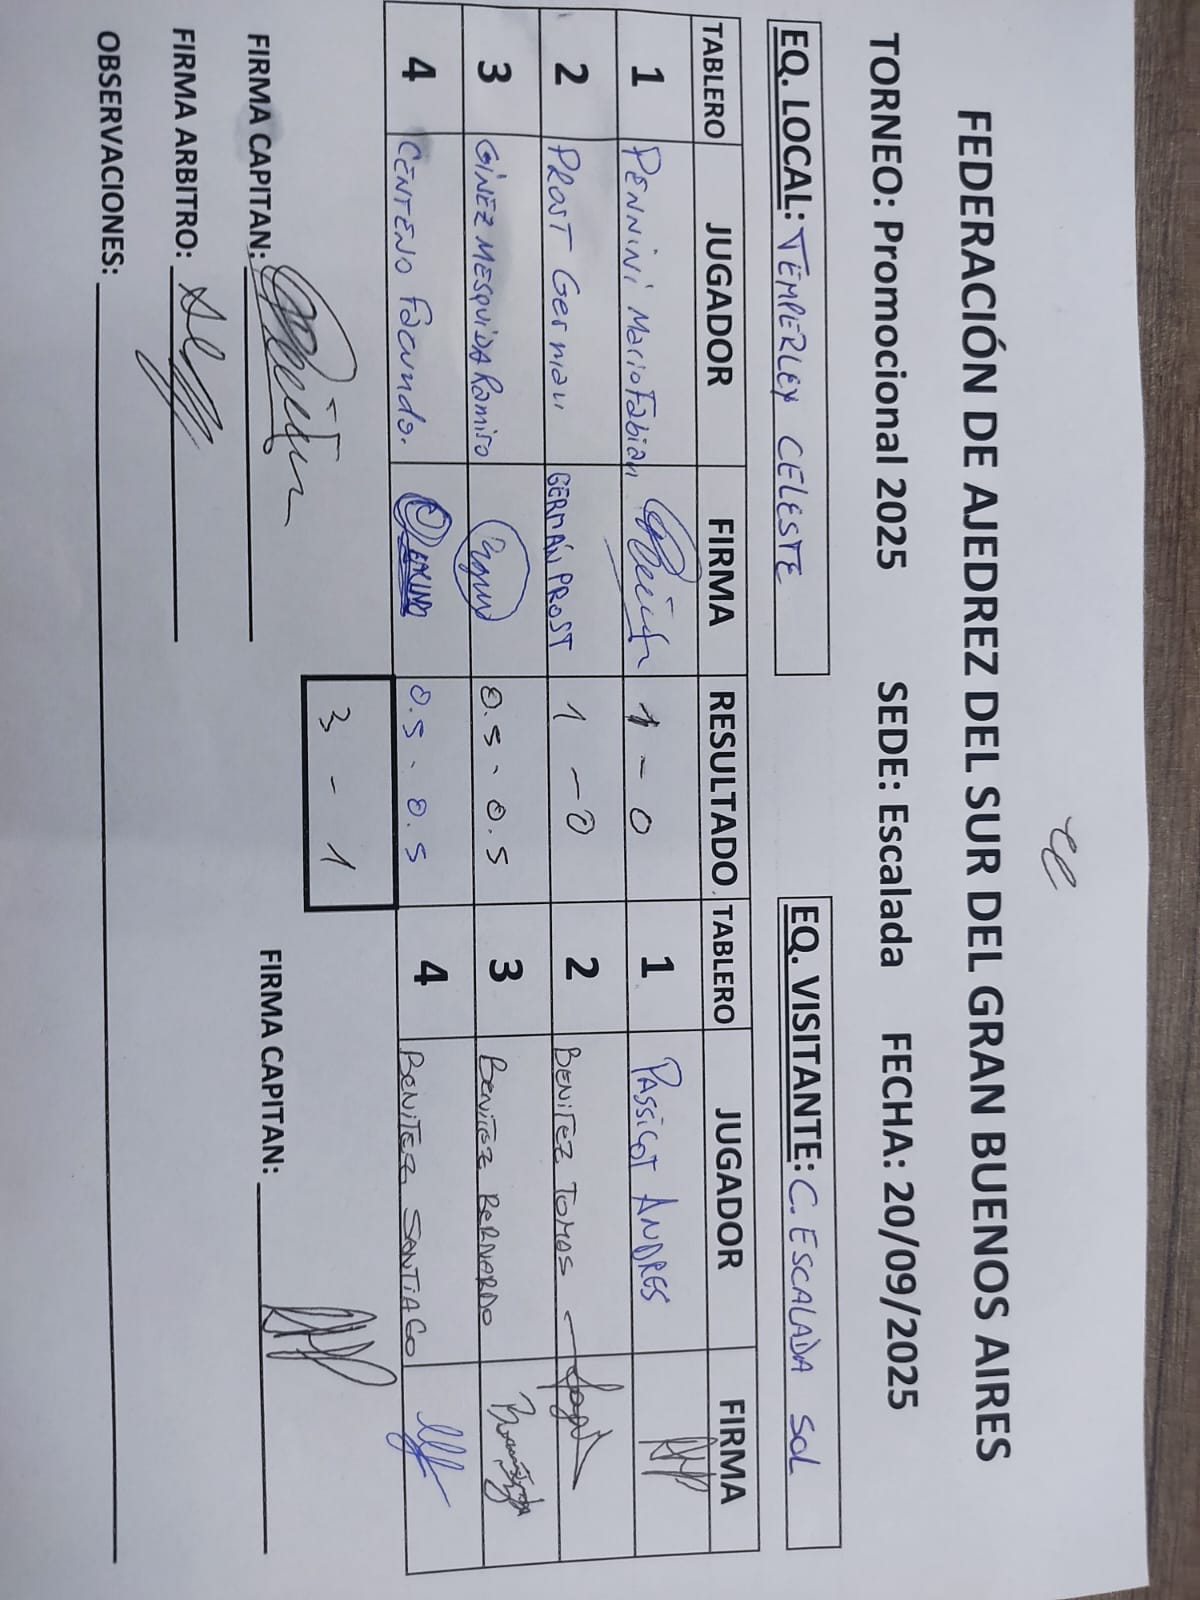 FEDERACIÓN DE AJEDREZ DEL SUR DEL GRAN BUENOS AIRES
TORNEO: Promocional 2025 SEDE: Escalada FECHA: 20/09/2025
EQ. LOCAL: TEMPERLEY CELESTE EQ. VISITANTE: C. ESCALADA SOL
TABLERO JUGADOR FIRMA RESULTADO TABLERO JUGADOR FIRMA
1 PENNINI Mario Fabian 1 - 0 1 PASSICOT ANDRES
2 PROST German GERMÁN PROST 1 - 0 2 BENITEZ TOMAS
3 GINEZ MESQUIDA Ramiro 0.5 - 0.5 3 BENITEZ BERNARDO
4 CENTENO Facundo. 0.5 - 0.5 4 BENITEZ SANTIAGO
3 - 1
FIRMA CAPITAN: FIRMA CAPITAN:
FIRMA ARBITRO:
OBSERVACIONES: